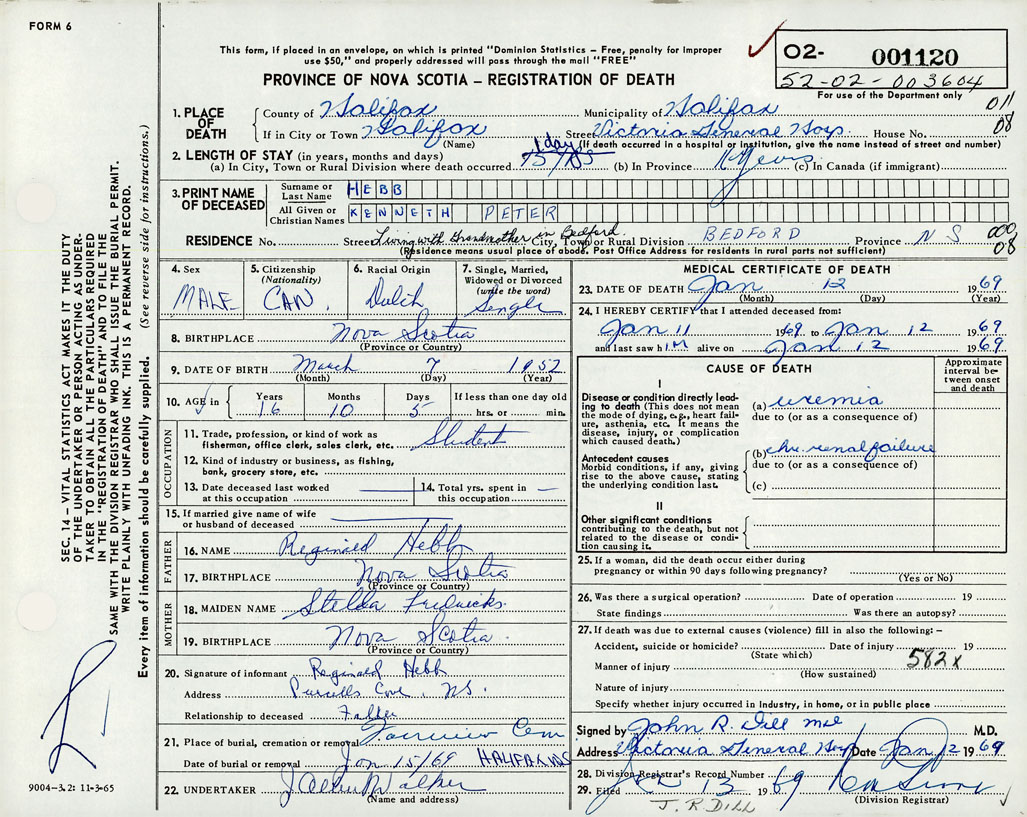 FORM 6
This form, if placed in an envelope, on which is printed "Dominion Statistics – Free, penalty for improper
use $50," and properly addressed will pass through the mail "FREE"
PROVINCE OF NOVA SCOTIA – REGISTRATION OF DEATH
O2- 001120
52-02-003604
For use of the Department only
011
08
1. PLACE OF DEATH
County of Halifax Municipality of Halifax
If in City or Town Halifax Street Victoria General Hosp. House No.
(Name) (If death occurred in a hospital or institution, give the name instead of street and number)
2. LENGTH OF STAY (in years, months and days)
1 day
(a) In City, Town or Rural Division where death occurred (b) In Province 16 years (c) In Canada (if immigrant)
3. PRINT NAME OF DECEASED
Surname or Last Name HEBB
All Given or Christian Names KENNETH PETER
RESIDENCE No. Street Living with Grandmother in Bedford City, Town or Rural Division BEDFORD Province N S
000
08
(Residence means usual place of abode. Post Office Address for residents in rural parts not sufficient)
4. Sex
MALE
5. Citizenship
(Nationality)
CAN.
6. Racial Origin
Dutch
7. Single, Married,
Widowed or Divorced
(write the word)
Single
8. BIRTHPLACE Nova Scotia
(Province or Country)
9. DATE OF BIRTH March 7 1952
(Month) (Day) (Year)
10. AGE in Years 16 Months 10 Days 5 If less than one day old
hrs. or min.
OCCUPATION
11. Trade, profession, or kind of work as
fisherman, office clerk, sales clerk, etc. Student
12. Kind of industry or business, as fishing,
bank, grocery store, etc.
13. Date deceased last worked
at this occupation
14. Total yrs. spent in
this occupation
15. If married give name of wife
or husband of deceased
FATHER
16. NAME Reginald Hebb
17. BIRTHPLACE Nova Scotia
(Province or Country)
MOTHER
18. MAIDEN NAME Stella
19. BIRTHPLACE Nova Scotia.
(Province or Country)
20. Signature of informant Reginald Hebb
Address Purcells Cove, NS.
Relationship to deceased Father
21. Place of burial, cremation or removal Fairview Cem
Date of burial or removal Jan 15/69 HALIFAX NS
22. UNDERTAKER Walker
(Name and address)
MEDICAL CERTIFICATE OF DEATH
23. DATE OF DEATH Jan 12 1969
(Month) (Day) (Year)
24. I HEREBY CERTIFY that I attended deceased from:
Jan 11 1969 to Jan 12 1969
and last saw him alive on Jan 12 1969
CAUSE OF DEATH
Approximate
interval be-
tween onset
and death
I
Disease or condition directly lead-
ing to death (This does not
mean the mode of dying, e.g., heart failure,
asthenia, etc. It means the
disease, injury, or complication
which caused death.)
(a) uremia
due to (or as a consequence of)
Antecedent causes
Morbid conditions, if any, giving
rise to the above cause, stating
the underlying condition last.
(b) chr. renal failure
due to (or as a consequence of)
(c)
II
Other significant conditions
contributing to the death, but not
related to the disease or condi-
tion causing it.
25. If a woman, did the death occur either during
pregnancy or within 90 days following pregnancy?
(Yes or No)
26. Was there a surgical operation? Date of operation 19
State findings Was there an autopsy?
27. If death was due to external causes (violence) fill in also the following: –
Accident, suicide or homicide? Date of injury 19
(State which)
582x
Manner of injury
(How sustained)
Nature of injury
Specify whether injury occurred in industry, in home, or in public place
Signed by John R. Dill M.D.
Address Victoria General Hosp Date Jan 12 1969
28. Division Registrar's Record Number
29. Filed 13 1969
(Division Registrar)
J. R. DILL
SEC. 14 – VITAL STATISTICS ACT MAKES IT THE DUTY
OF THE UNDERTAKER OR PERSON ACTING AS UNDER-
TAKER TO OBTAIN ALL THE PARTICULARS REQUIRED
IN THE "REGISTRATION OF DEATH" AND TO FILE THE
SAME WITH THE DIVISION REGISTRAR WHO SHALL ISSUE THE BURIAL PERMIT.
WRITE PLAINLY WITH UNFADING INK. THIS IS A PERMANENT RECORD.
Every item of information should be carefully supplied. (See reverse side for instructions.)
9004-3.2: 11-3-65